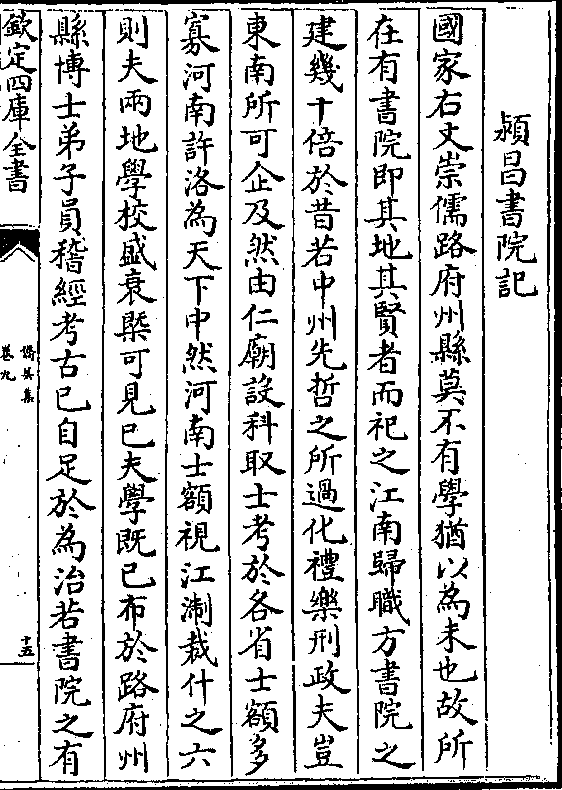 潁昌書院記
國家右文崇儒路府州縣莫不有學猶以為未也故所
在有書院即其地其賢者而祀之江南歸職方書院之
建幾十倍於昔若中州先哲之所過化禮樂刑政夫豈
東南所可企及然由仁廟設科取士考於各省士額多
寡河南許洛為天下中然河南士額視江淛裁什之六
則夫兩地學校盛衰槩可見已夫學既已布於路府州
縣博士弟子員稽經考古已自足於為治若書院之有
欽定四庫全書
僑吳集
卷九
十五